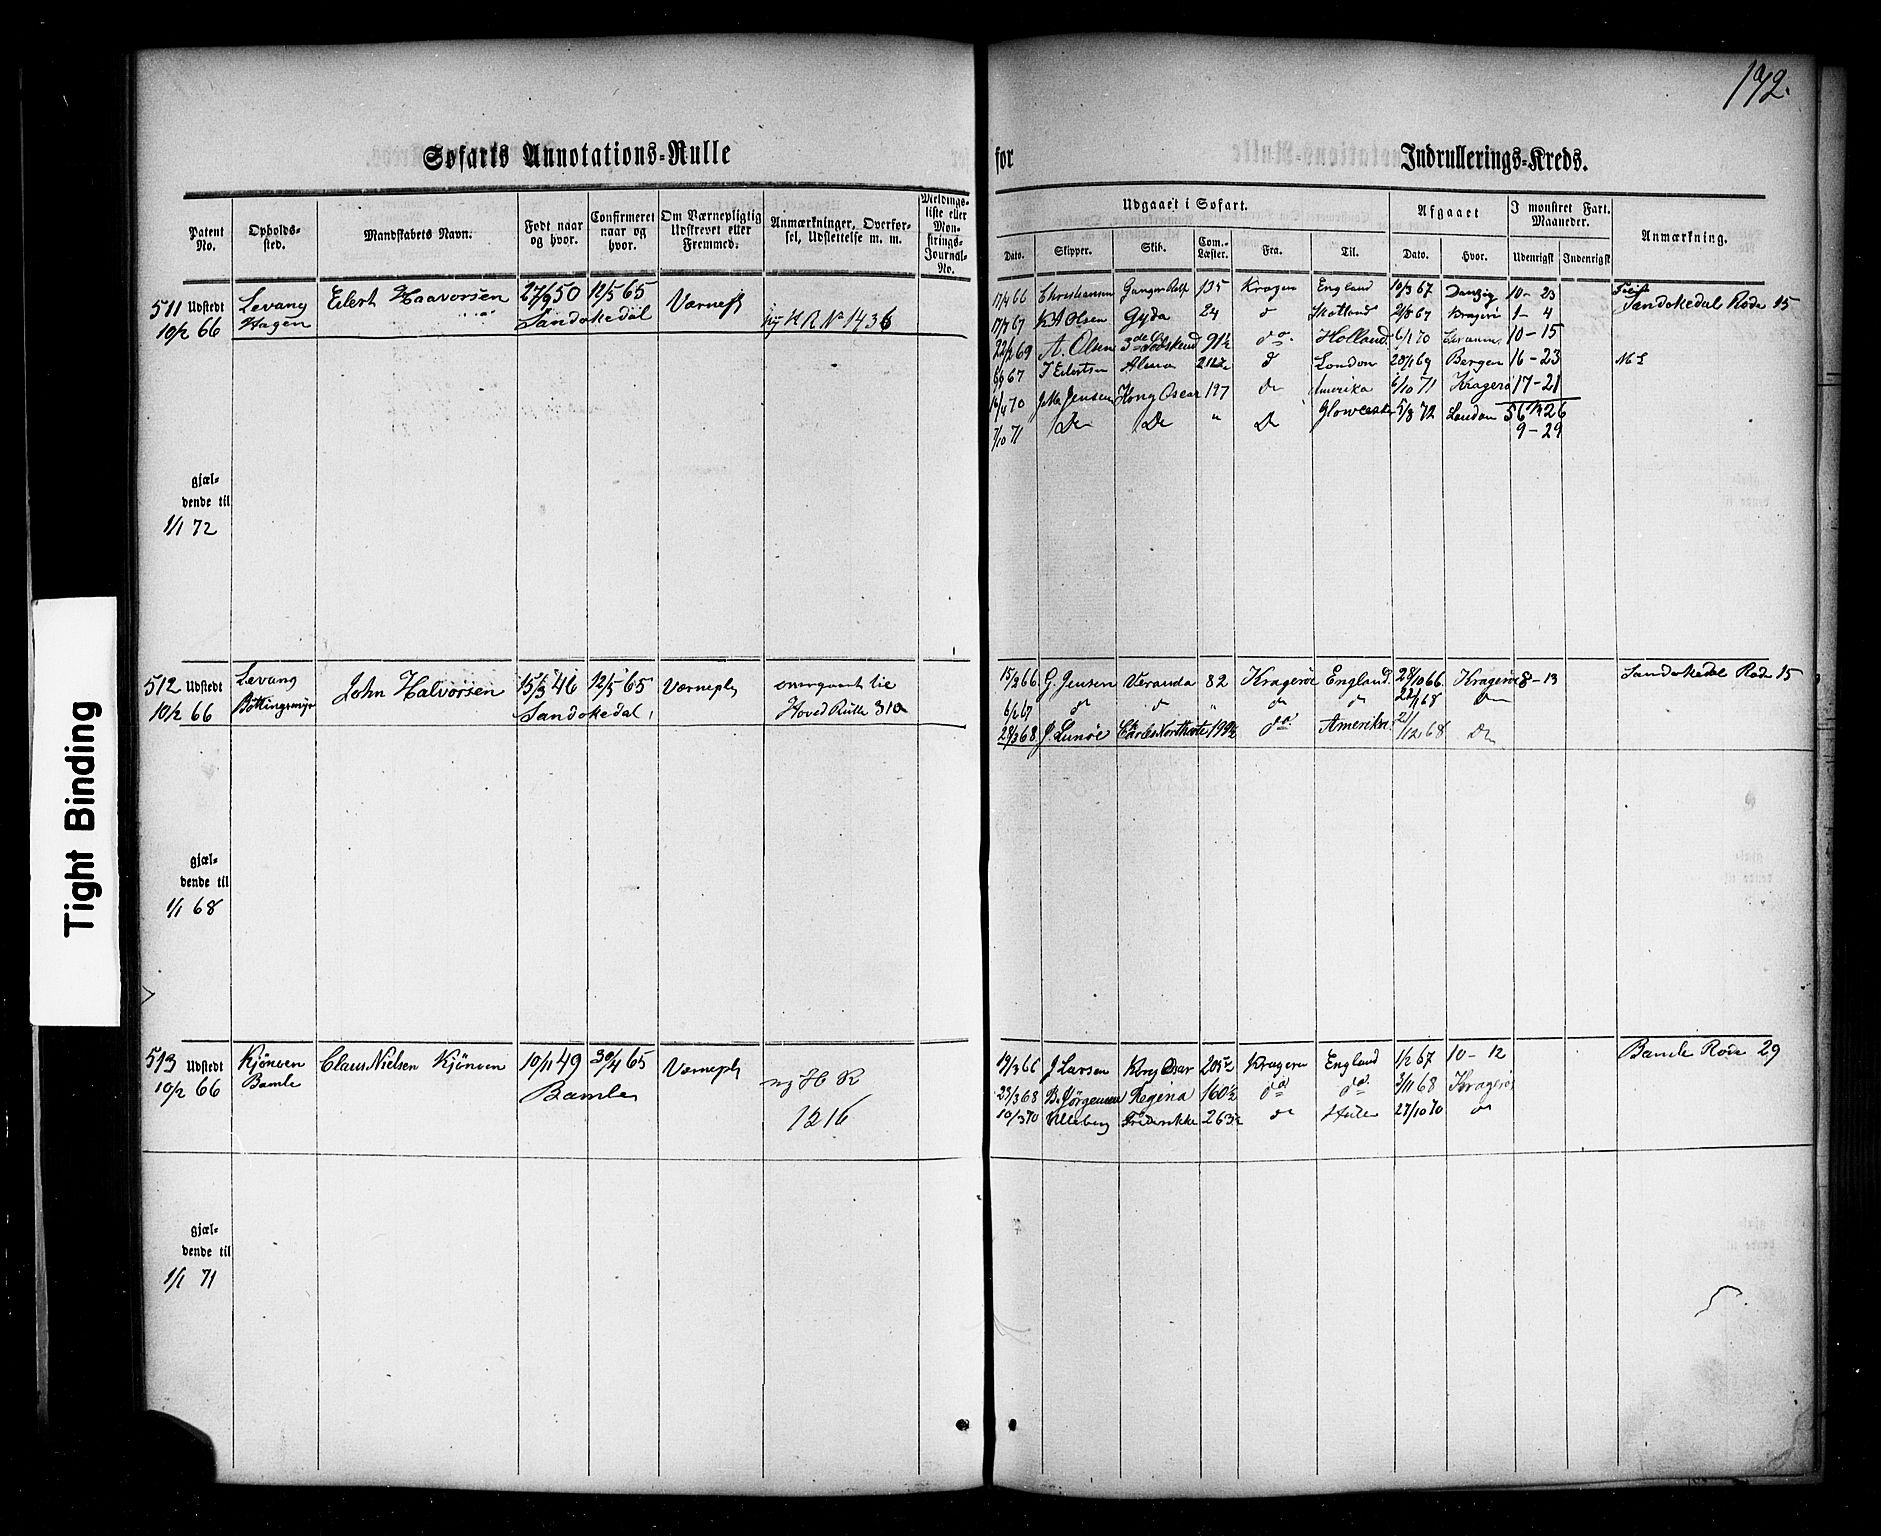 192.
Søfarts Annotations-Rulle for Indrullerings-Kreds.
Patent No. Opholds-sted. Mandskabets Navn. Født naar og hvor. Confirmeret naar og hvor. Om Værnepligtig Udskrevet eller Fremmed. Anmærkninger, Overførsel, Udslettelse m. m. Meldings-liste eller Mønstrings-Journal-No.
Udgaaet i Søfart. Afgaaet I mønstret Fart. Maaneder. Anmærkning.
Dato. Skipper. Skib. Com.-Læster. Fra. Til. Dato. Hvor. Udenrigsk Indenrigsk
511 Udstedt 10/2 66
Levang Hagen
Eilert Haavorsen
27/9 50 12/5 65
Sandøkedal
ny H R No 1436
17/4 66 Christiansen Ganger Rolf 135 Kragerø England 10/3 67 Danzig 10-23
Sandøkedal Rode 15
17/7 67 Olsen Gyda 24 Skotland 2/8 67 Kragerø 1-4
22/2 69 A. Olsen 91½ do. Holland 6/1 70 10-15
67 Eilertsen London 28/1 69 Bergen 16-23
16/4 70 Jensen Kong Oscar 197 Do Amerika 6/10 71 Kragerø 17-21
7/10 71 Do Do " Do 5/8 72 London
9-29
gjæl-
dende til
1/1 72
512 Udstedt 10/2 66
Levang
John Halvorsen
15/3 46 12/5 65
Sandøkedal
Værnepl
overgaaet til
Hoved Rulle 310
15/3 66 G. Jensen Veranda 82 Kragerø England 28/10 66 Kragerø 8-13
Sandøkedal Rode 15
6/2 67 do do " do do 22/1 68 Do
28/3 68 J. Lunøe do Amerika 21/12 68 Do
gjæl-
dende til
1/1 68
513 Udstedt 10/2 66
Bamle
Claus Nielsen Kjønsen
19/11 49 30/4 65
Bamle
Værnepl
ny H R
1216
19/3 66 J Larsen Kong Oscar Kragerø England 1/2 67 10-12
Bamle Rode 29
23/3 68 B. Jørgensen Regina 160½ do do 3/11 68 Kragerø
Frederikke do 27/10 70 do
gjæl-
dende til
1/1 71
Tight Binding